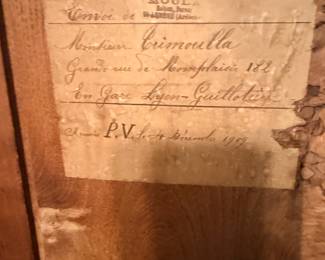 Envoi de
Monsieur Trimouilla
Grande rue de Monplaisir 122
En Gare Lyon-Guillotière
P.V. le 4 Décembre 1909